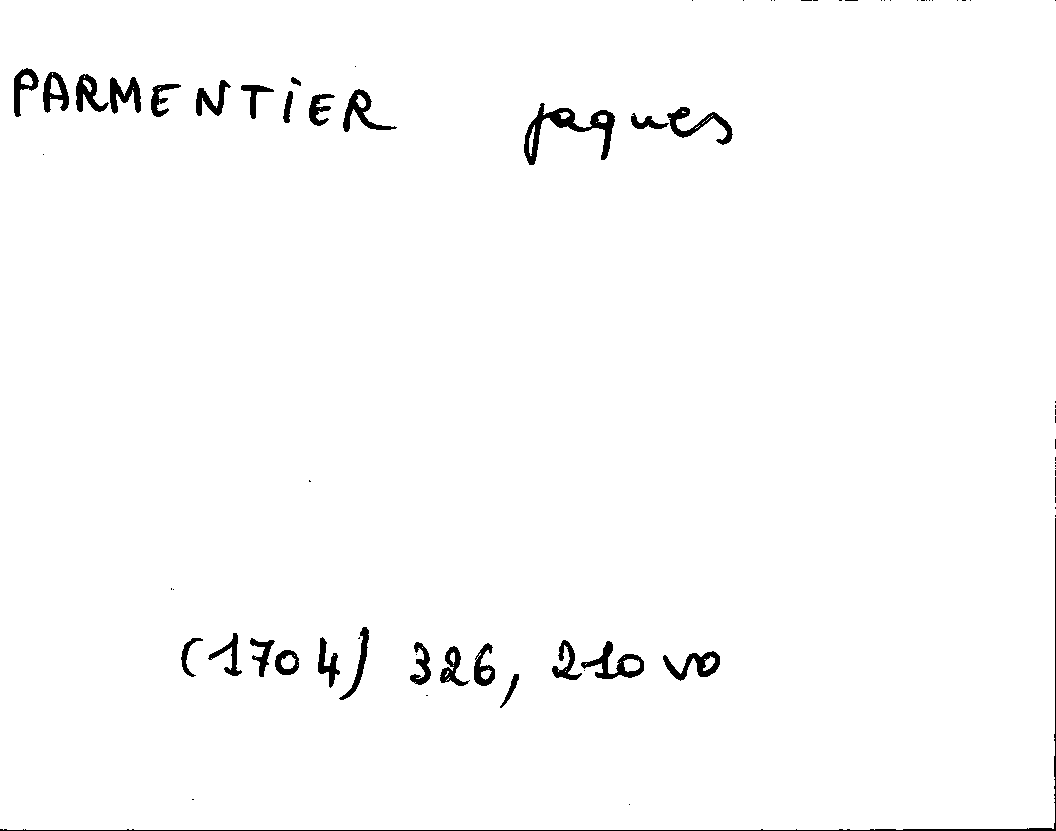 PARMENTIER jaques
(1704) 326, 210 vo